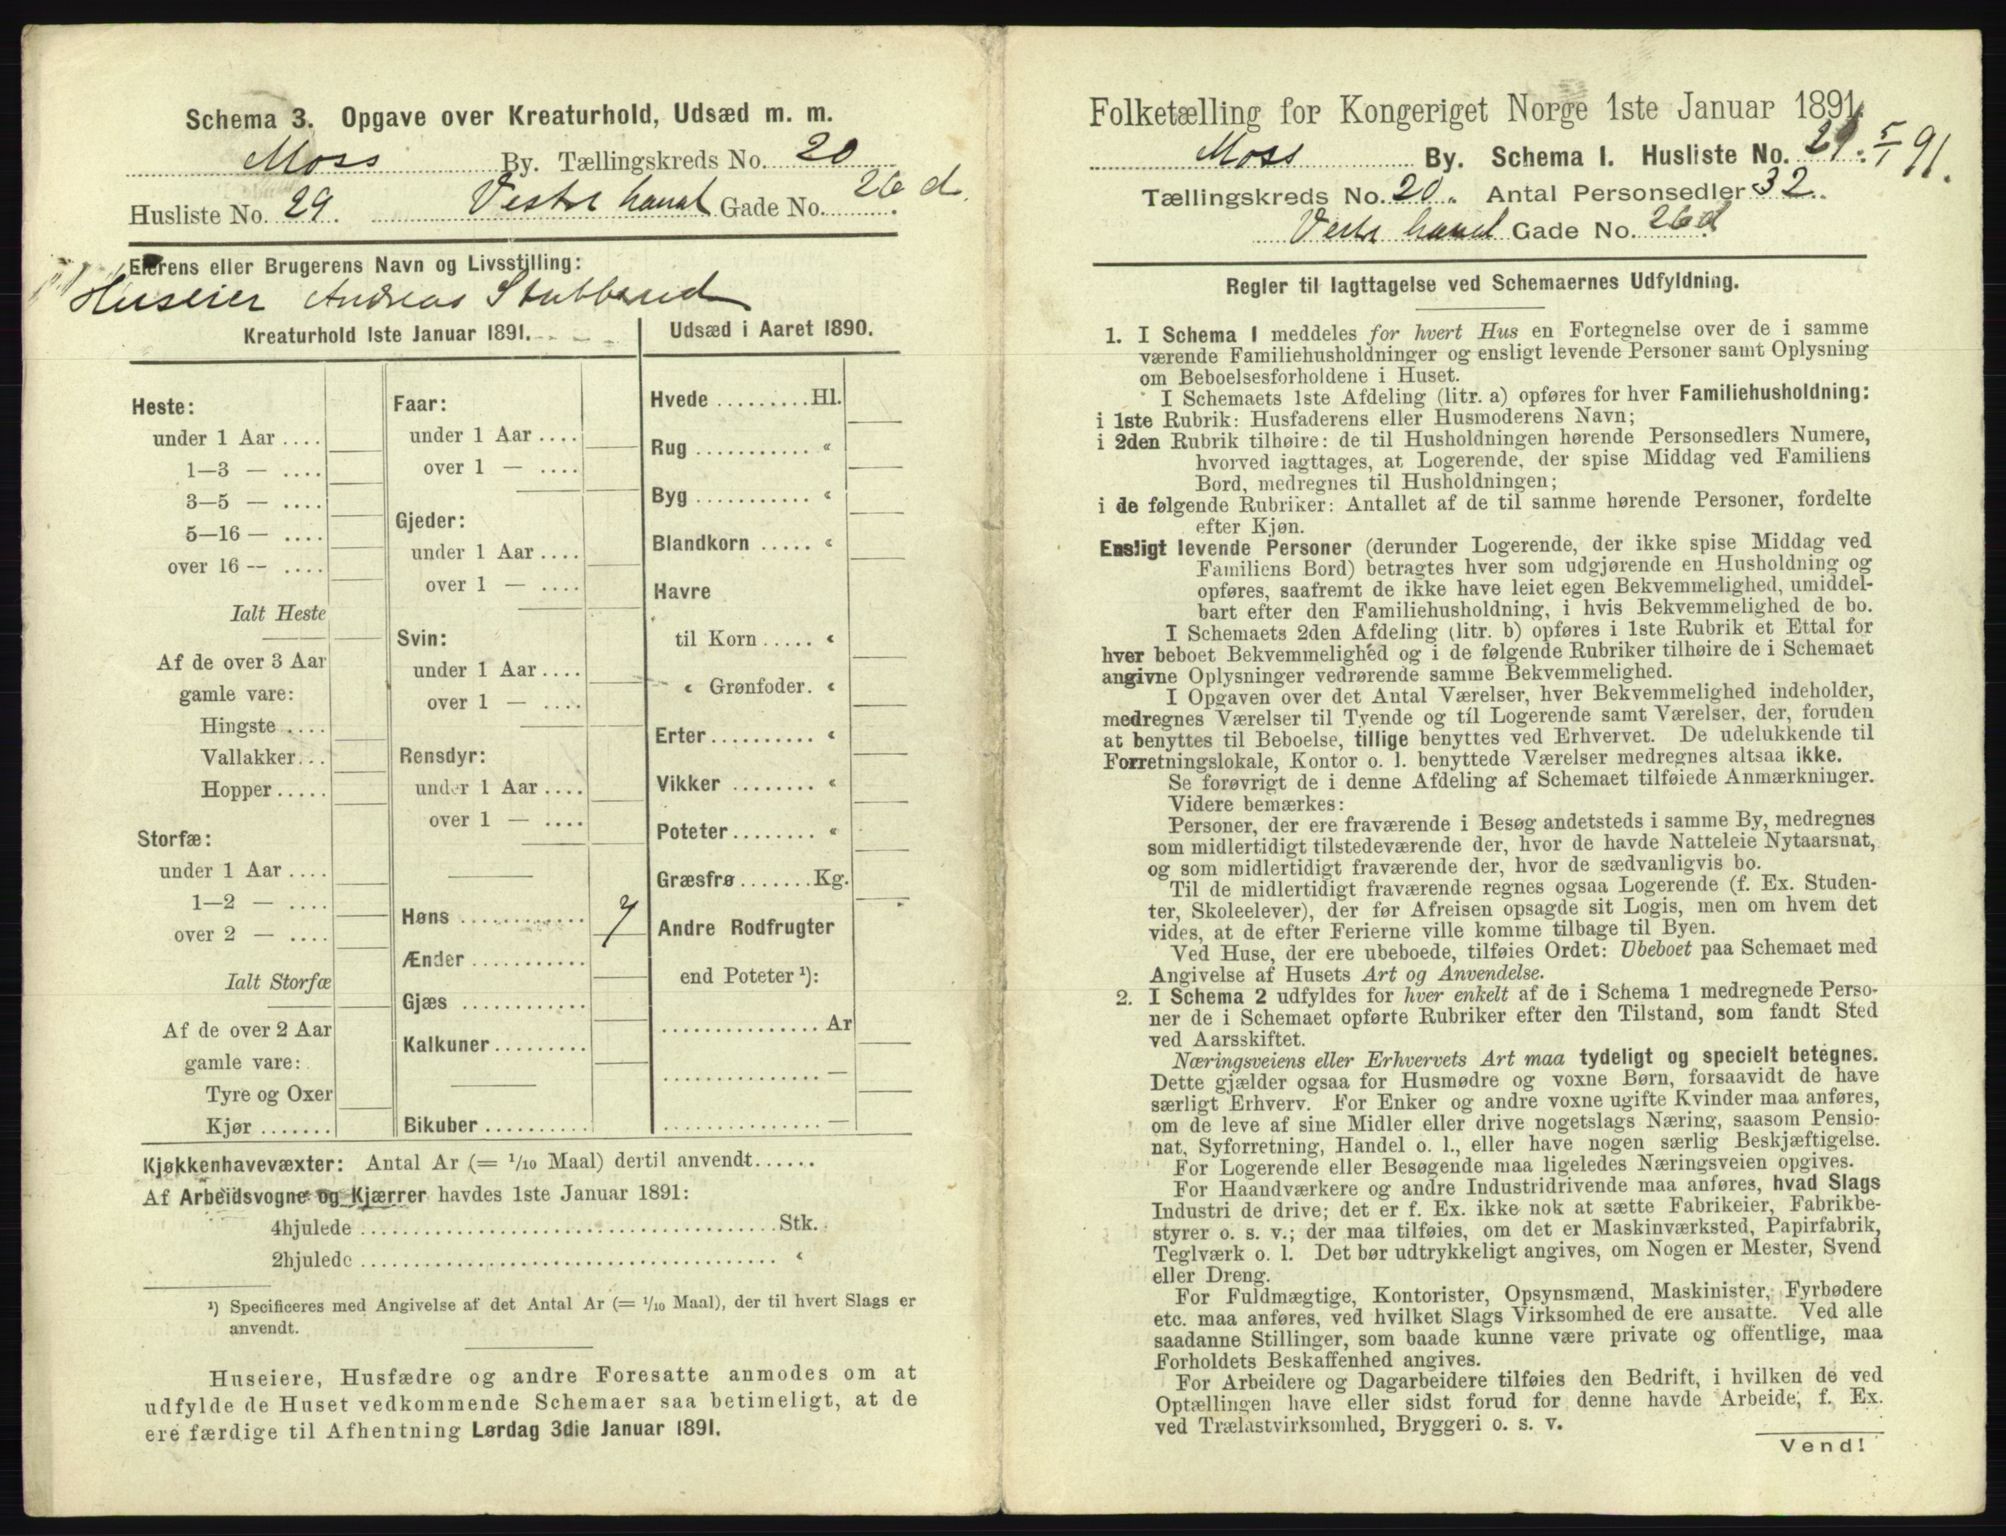 Schema 3. Opgave over Kreaturhold, Udsæd m. m.
Moss By. Tællingskreds No. 20
Husliste No. 29. Vestre Kanal Gade No. 26 d.
Eierens eller Brugerens Navn og Livsstilling:
Huseier Andreas Stubberud
Kreaturhold 1ste Januar 1891.
Heste:
under 1 Aar ....
1—3 — ....
3—5 — ....
5—16 — ....
over 16 — ....
Ialt Heste
Af de over 3 Aar
gamle vare:
Hingste ....
Vallakker...
Hopper .....
Storfæ:
under 1 Aar ....
1—2 — ....
over 2 — ....
Ialt Storfæ
Af de over 2 Aar
gamle vare:
Tyre og Oxer
Kjør .......
Faar:
under 1 Aar ....
over 1 — ....
Gjeder:
under 1 Aar ....
over 1 — ....
Svin:
under 1 Aar ....
over 1 — ....
Rensdyr:
under 1 Aar ....
over 1 — ....
Høns ............ 7
Ænder ...........
Gjæs ............
Kalkuner.........
Bikuber ..........
Udsæd i Aaret 1890.
Hvede .........Hl.
Rug ........... «
Byg ........... «
Blandkorn ..... «
Havre
til Korn ..... «
« Grønfoder. «
Erter.......... «
Vikker ........ «
Poteter........ «
Græsfrø.......Kg.
Andre Rodfrugter
end Poteter ¹):
............... Ar
............... —
............... —
Kjøkkenhavevæxter: Antal Ar (= ¹/₁₀ Maal) dertil anvendt......
Af Arbeidsvogne og Kjærrer havdes 1ste Januar 1891:
4hjulede ........................................Stk.
2hjulede ........................................ «
¹) Specificeres med Angivelse af det Antal Ar (= ¹/₁₀ Maal), der til hvert Slags er
anvendt.
Huseiere, Husfædre og andre Foresatte anmodes om at
udfylde de Huset vedkommende Schemaer saa betimeligt, at de
ere færdige til Afhentning Lørdag 3die Januar 1891.
Folketælling for Kongeriget Norge 1ste Januar 1891.
Moss By. Schema 1. Husliste No. 29. 5/1 91.
Tællingskreds No. 20. Antal Personsedler 32.
Vestre Kanal Gade No. 26d
Regler til Iagttagelse ved Schemaernes Udfyldning.
1. I Schema 1 meddeles for hvert Hus en Fortegnelse over de i samme
værende Familiehusholdninger og ensligt levende Personer samt Oplysning
om Beboelsesforholdene i Huset.
I Schemaets 1ste Afdeling (litr. a) opføres for hver Familiehusholdning:
i 1ste Rubrik: Husfaderens eller Husmoderens Navn;
i 2den Rubrik tilhøire: de til Husholdningen hørende Personsedlers Numere,
hvorved iagttages, at Logerende, der spise Middag ved Familiens
Bord, medregnes til Husholdningen;
i de følgende Rubriker: Antallet af de til samme hørende Personer, fordelte
efter Kjøn.
Ensligt levende Personer (derunder Logerende, der ikke spise Middag ved
Familiens Bord) betragtes hver som udgjørende en Husholdning og
opføres, saafremt de ikke have leiet egen Bekvemmelighed, umiddel-
bart efter den Familiehusholdning, i hvis Bekvemmelighed de bo.
I Schemaets 2den Afdeling (litr. b) opføres i 1ste Rubrik et Ettal for
hver beboet Bekvemmelighed og i de følgende Rubriker tilhøire de i Schemaet
angivne Oplysninger vedrørende samme Bekvemmelighed.
I Opgaven over det Antal Værelser, hver Bekvemmelighed indeholder,
medregnes Værelser til Tyende og til Logerende samt Værelser, der, foruden
at benyttes til Beboelse, tillige benyttes ved Erhvervet. De udelukkende til
Forretningslokale, Kontor o. l. benyttede Værelser medregnes altsaa ikke.
Se forøvrigt de i denne Afdeling af Schemaet tilføiede Anmærkninger.
Videre bemærkes:
Personer, der ere fraværende i Besøg andetsteds i samme By, medregnes
som midlertidigt tilstedeværende der, hvor de havde Natteleie Nytaarsnat,
og som midlertidigt fraværende der, hvor de sædvanligvis bo.
Til de midlertidigt fraværende regnes ogsaa Logerende (f. Ex. Studen-
ter, Skoleelever), der før Afreisen opsagde sit Logis, men om hvem det
vides, at de efter Ferierne ville komme tilbage til Byen.
Ved Huse, der ere ubeboede, tilføies Ordet: Ubeboet paa Schemaet med
Angivelse af Husets Art og Anvendelse.
2. I Schema 2 udfyldes for hver enkelt af de i Schema 1 medregnede Perso-
ner de i Schemaet opførte Rubriker efter den Tilstand, som fandt Sted
ved Aarsskiftet.
Næringsveiens eller Erhvervets Art maa tydeligt og specielt betegnes.
Dette gjælder ogsaa for Husmødre og voxne Børn, forsaavidt de have
særligt Erhverv. For Enker og andre voxne ugifte Kvinder maa anføres,
om de leve af sine Midler eller drive nogetslags Næring, saasom Pensio-
nat, Syforretning, Handel o. l., eller have nogen særlig Beskjæftigelse.
For Logerende eller Besøgende maa ligeledes Næringsveien opgives.
For Haandværkere og andre Industridrivende maa anføres, hvad Slags
Industri de drive; det er f. Ex. ikke nok at sætte Fabrikeier, Fabrikbe-
styrer o. s. v.; der maa tilføies, om det er Maskinværksted, Papirfabrik,
Teglværk o. l. Det bør udtrykkeligt angives, om Nogen er Mester, Svend
eller Dreng.
For Fuldmægtige, Kontorister, Opsynsmænd, Maskinister, Fyrbødere
etc. maa anføres, ved hvilket Slags Virksomhed de ere ansatte. Ved alle
saadanne Stillinger, som baade kunne være private og offentlige, maa
Forholdets Beskaffenhed angives.
For Arbeidere og Dagarbeidere tilføies den Bedrift, i hvilken de ved
Optællingen have eller sidst forud for denne havde Arbeide, f. Ex.
ved Trælastvirksomhed, Bryggeri o. s. v.
Vend!